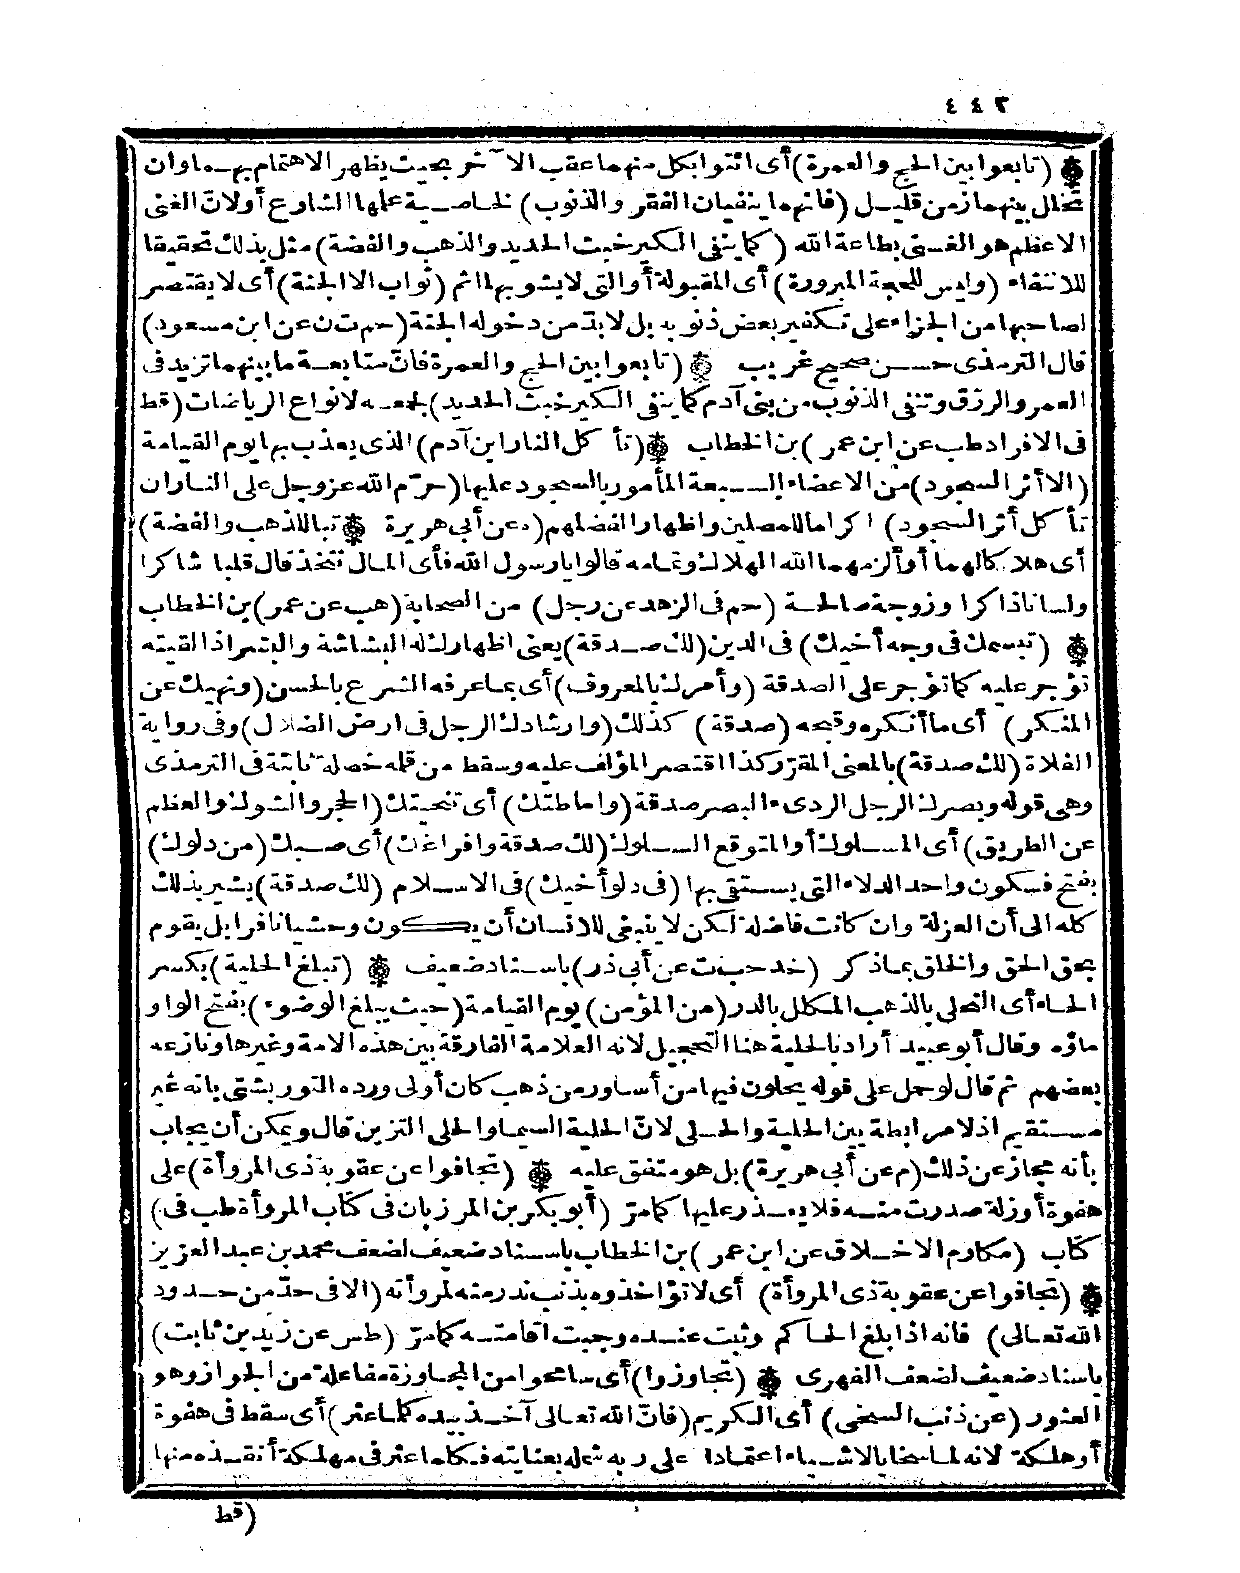 ٤٤٢
(تابعوا بين الحج والعمرة) أى ائتوا بكل منهما عقب الآخر بحيث يظهر الاهتمام بهما وان
تخلل بينهما زمن قليل (فانهما ينفيان الفقر والذنوب) لخاصية علمها الشارع أولان الغنى
الاعظم هو الغنى بطاعة الله (كما ينفى الكير خبث الحديد والذهب والفضة) مثل بذلك تحقيقا
للانتفاء (وليس للحجة المبرورة) أى المقبولة أوالتى لايشوبها اثم (ثواب الا الجنة) أى لا يقتصر
لصاحبها من الجزاء على تكفير بعض ذنوبه بل لابد من دخوله الجنة (حم ت ن عن ابن مسعود)
قال الترمذى حسن صحيح غريب (تابعوا بين الحج والعمرة فان متابعة ما بينهما تزيد فى
العمر والرزق وتنفى الذنوب من بنى آدم كما ينفى الكير خبث الحديد) لجمعه لانواع الرياضات (قط
فى الافراد طب عن ابن عمر) بن الخطاب (تأكل النار ابن آدم) الذى يعذب بها يوم القيامة
(الا أثر السجود) من الاعضاء السبعة المأمور بالسجود عليها (حرّم الله عز وجل على النار ان
تأكل أثر السجود) اكراما للمصلين واظهارا لفضلهم (ه عن أبى هريرة) (تبا للذهب والفضة)
أى هلاكا لهما أو ألزمهما الله الهلاك وتمامه قالوا يا رسول الله فأى المال نتخذ قال قلبا شاكرا
ولسانا ذاكرا وزوجة صالحة (حم فى الزهد عن رجل) من الصحابة (هب عن عمر) بن الخطاب
(تبسمك فى وجه أخيك) فى الدين (لك صدقة) يعنى اظهارك له البشاشة والبشر اذا لقيته
تؤجر عليه كما تؤجر على الصدقة (وأمرك بالمعروف) أى بما عرفه الشرع بالحسن (ونهيك عن
المنكر) أى ما أنكره وقبحه (صدقة) كذلك (وارشادك الرجل فى ارض الضلال) وفى رواية
الفلاة (لك صدقة) بالمعنى المقرر كذا اقتصر المؤلف عليه وسقط من قلمه خصلة ثابتة فى الترمذى
وهى قوله وبصرك الرجل الردىء البصر صدقة (واماطتك) أى تنحيتك (الحجر والشوك والعظم
عن الطريق) أى المسلوك أو المتوقع السلوك (لك صدقة وافراغك) أى صبك (من دلوك)
بفتح فسكون واحد الدلاء التى يستقى بها (فى دلو أخيك) فى الاسلام (لك صدقة) يشير بذلك
كله الى أن العزلة وان كانت فاضلة لكن لا ينبغى للانسان أن يكون وحشيا نافرا بل يقوم
بحق الحق والخلق بما ذكر (خد حب ت عن أبى ذر) باسناد ضعيف (تبلغ الحلية) بكسر
الحاء أى التحلى بالذهب المكلل بالدر (من المؤمن) يوم القيامة (حيث يبلغ الوضوء) بفتح الواو
ماؤه وقال أبو عبيد أراد بالحلية هنا التحجيل لانه العلامة الفارقة بين هذه الامة وغيرها ونازعه
بعضهم ثم قال لوحمل على قوله يحلون فيها من أساور من ذهب كان أولى ورده التوربشتى بانه غير
مستقيم اذلا مرابطة بين الحلية والحلى لان الحلية السيما والحلى التزين قال ويمكن أن يجاب
بأنه مجاز عن ذلك (م عن أبى هريرة) بل هو متفق عليه (تجافوا عن عقوبة ذى المروأة) على
هفوة أوزلة صدرت منه فلا يعذر عليها كما مرّ (أبو بكر بن المرزبان فى كتاب المروأة طب فى)
كتاب (مكارم الاخلاق عن ابن عمر) بن الخطاب باسناد ضعيف لضعف محمد بن عبد العزيز
(تجافوا عن عقوبة ذى المروأة) أى لا تؤاخذوه بذنب ندر منه لمروأته (الا فى حدّ من حدود
الله تعالى) فانه اذا بلغ الحاكم وثبت عنده وجبت اقامته كما مرّ (طس عن زيد بن ثابت)
باسناد ضعيف لضعف الفهرى (تجاوزوا) أى سامحوا من المجاوزة مفاعلة من الجواز وهو
العبور (عن ذنب السخى) أى الكريم (فان الله تعالى آخذ بيده كلما عثر) أى سقط فى هفوة
أو هلكة لانه لما سخا بالاشياء اعتمادا على ربه شمله بعنايته فكلما عثر فى مهلكة أنقذه منها
(قط